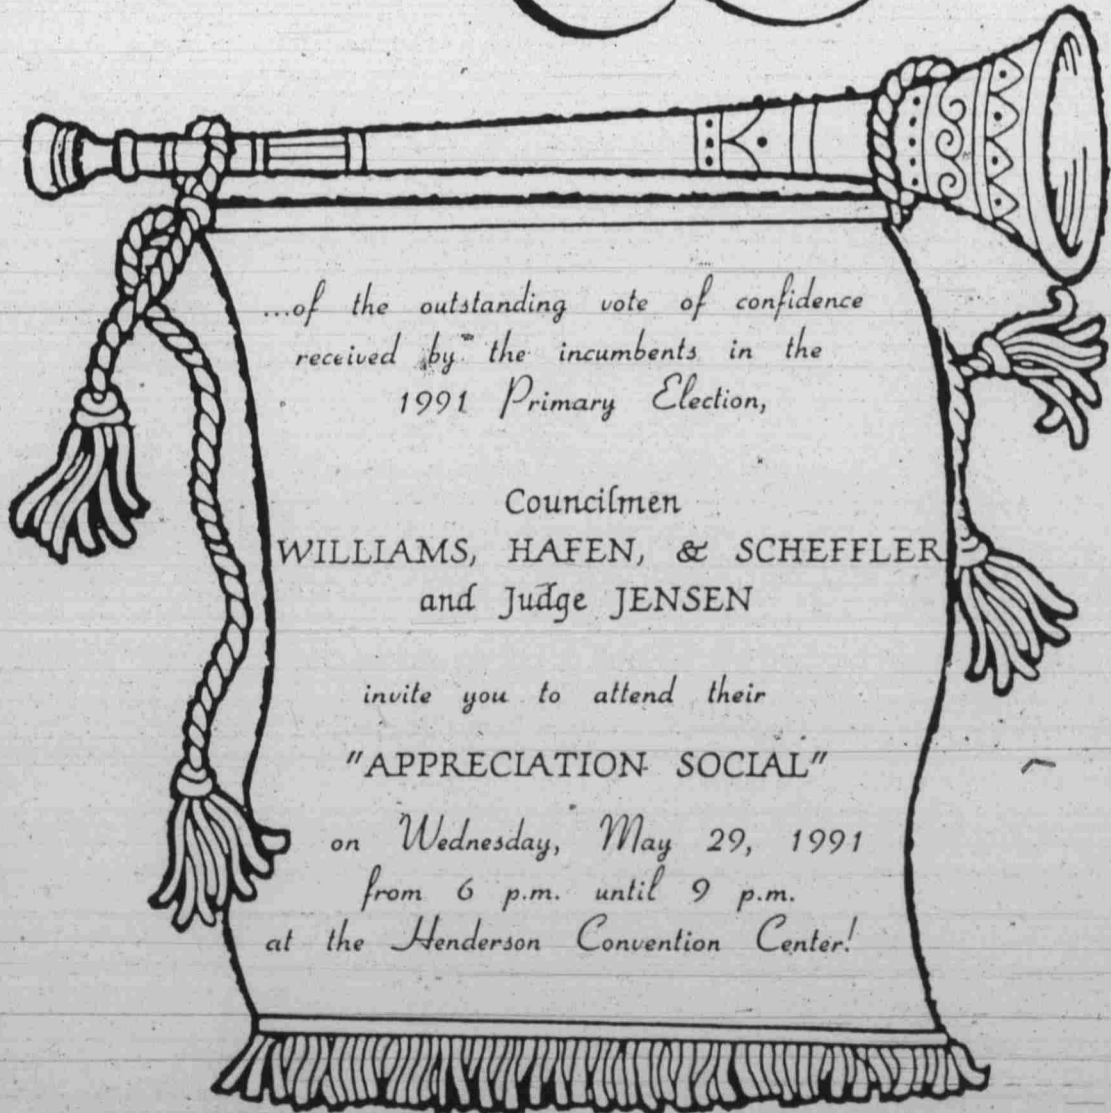 ...of the outstanding vote of confidence
received by the incumbents in the
1991 Primary Election,
Councilmen
WILLIAMS, HAFEN, & SCHEFFLER
and Judge JENSEN
invite you to attend their
"APPRECIATION SOCIAL"
on Wednesday, May 29, 1991
from 6 p.m. until 9 p.m.
at the Henderson Convention Center!